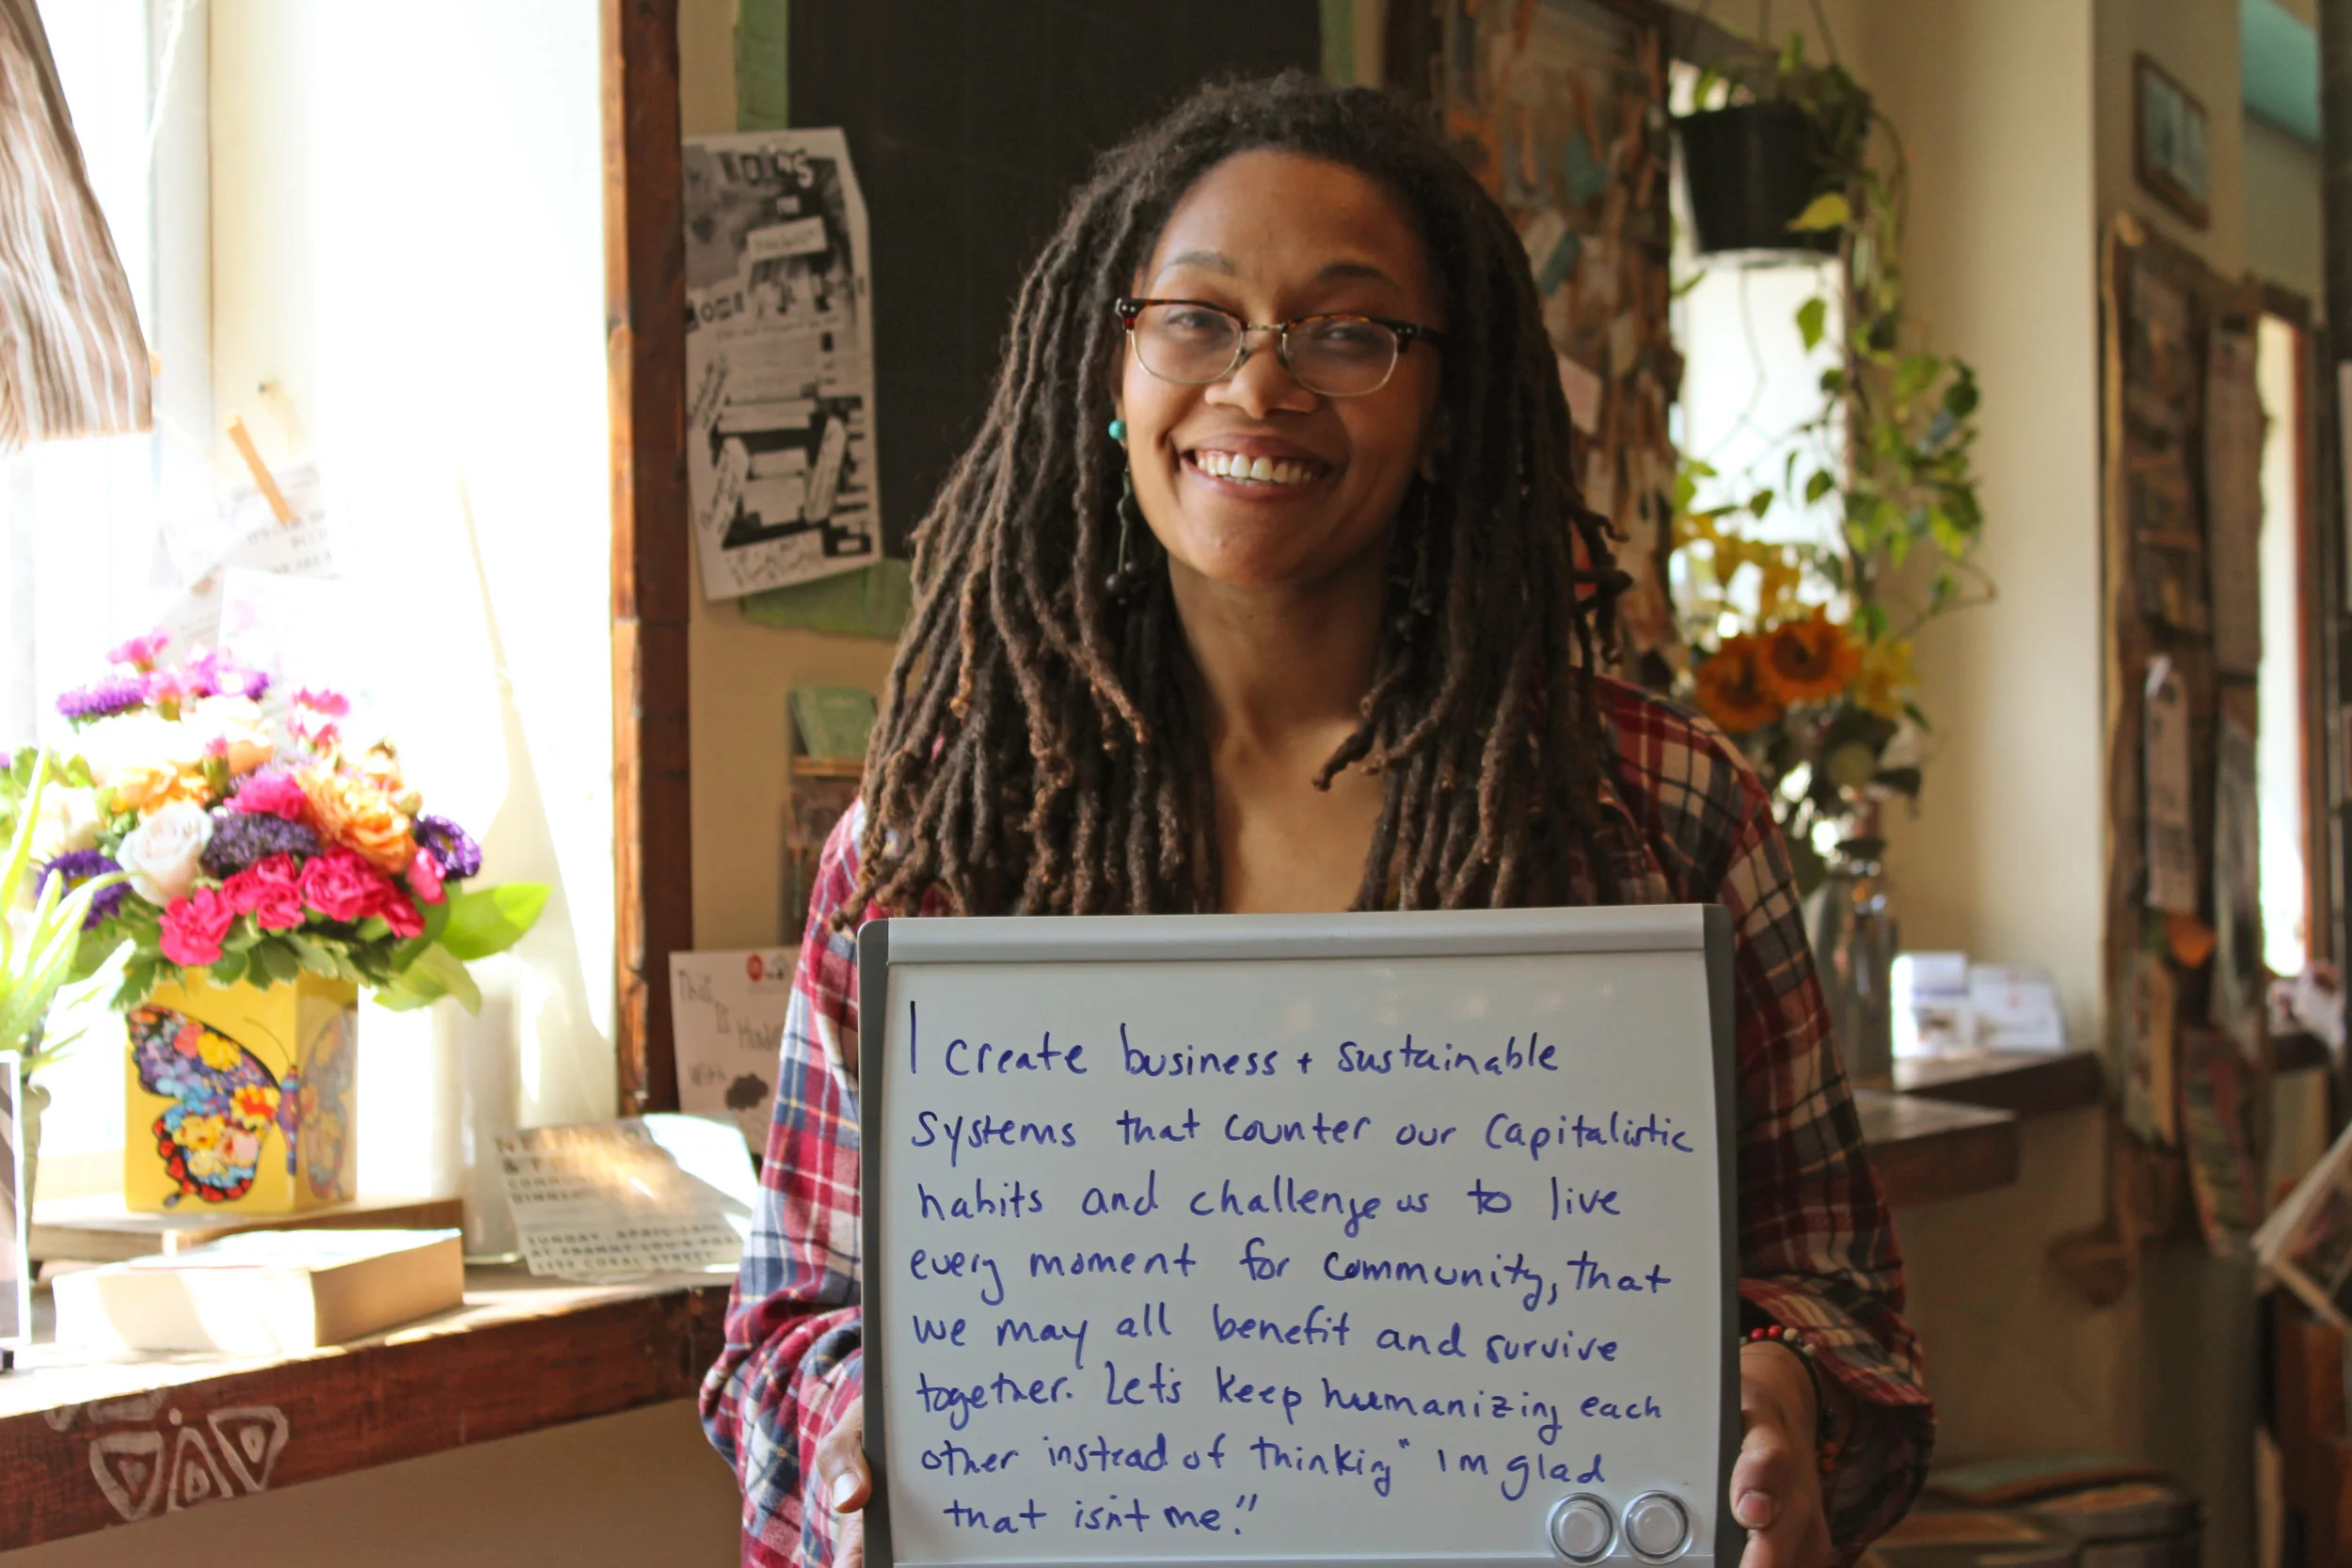 I create business + sustainable
Systems that counter our Capitalistic
habits and challenge us to live
every moment for community, that
we may all benefit and survive
together. Let's keep humanizing each
other instead of thinking "Im glad
that isn't me."
This
Is
With
SUNDAY, APRIL
CORAL STREET